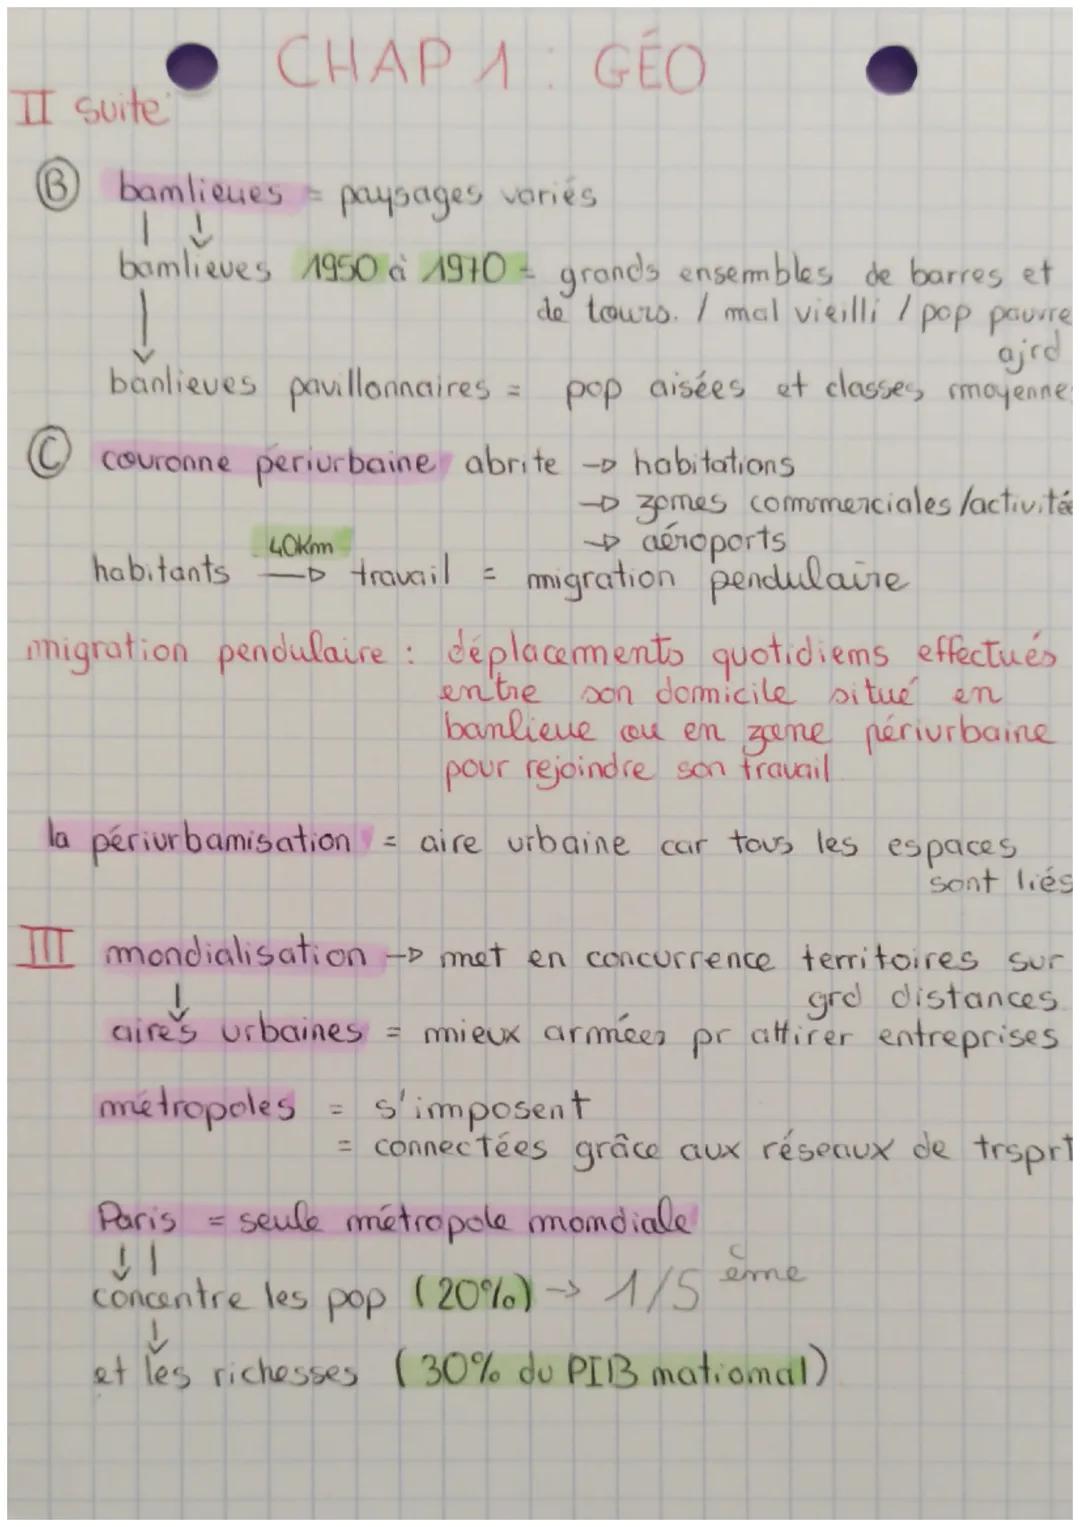 CHAP 1 : GÉO
II suite
B banlieues = paysages variés
banlieues 1950 à 1970 = grands ensembles de barres et
de tours. / mal vieilli / pop pauvre
ajrd
banlieues pavillonnaires = pop aisées et classes moyennes
C couronne periurbaine abrite → habitations
→ zones commerciales/activité
→ aéroports
40km
habitants → travail = migration pendulaire
migration pendulaire : déplacements quotidiens effectués
entre son domicile situé en
banlieue ou en zone périurbaine
pour rejoindre son travail
la périurbanisation = aire urbaine car tous les espaces
sont liés
III mondialisation → met en concurrence territoires sur
grd distances
aires urbaines = mieux armées pr attirer entreprises
métropoles = s'imposent
= connectées grâce aux réseaux de trsprt
Paris = seule métropole mondiale
concentre les pop (20%) → 1/5 ème
et les richesses (30% du PIB national)